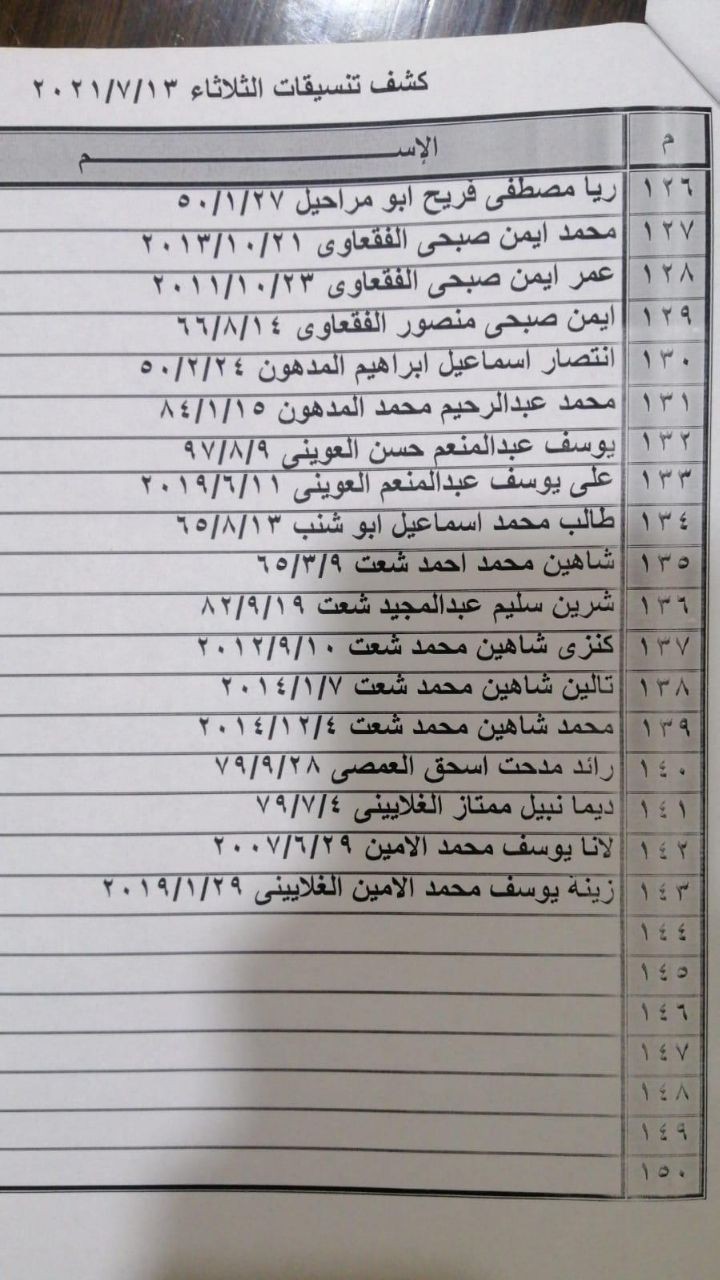 كشف تنسيقات الثلاثاء ٢٠٢١/٧/١٣
م الإســـــــــــــم
١٢٦ ريا مصطفى فريح ابو مراحيل ٥٠/١/٢٧
١٢٧ محمد ايمن صبحى الفقعاوى ٢٠١٣/١٠/٢١
١٢٨ عمر ايمن صبحى الفقعاوى ٢٠١١/١٠/٢٣
١٢٩ ايمن صبحى منصور الفقعاوى ٦٦/٨/١٤
١٣٠ انتصار اسماعيل ابراهيم المدهون ٥٠/٢/٢٤
١٣١ محمد عبدالرحيم محمد المدهون ٨٤/١/١٥
١٣٢ يوسف عبدالمنعم حسن العوينى ٩٧/٨/٩
١٣٣ على يوسف عبدالمنعم العوينى ٢٠١٩/٦/١١
١٣٤ طالب محمد اسماعيل ابو شنب ٦٥/٨/١٣
١٣٥ شاهين محمد احمد شعت ٦٥/٣/٩
١٣٦ شرين سليم عبدالمجيد شعت ٨٢/٩/١٩
١٣٧ كنزى شاهين محمد شعت ٢٠١٢/٩/١٠
١٣٨ تالين شاهين محمد شعت ٢٠١٤/١/٧
١٣٩ محمد شاهين محمد شعت ٢٠١٤/١٢/٤
١٤٠ رائد مدحت اسحق العمصى ٧٩/٩/٢٨
١٤١ ديما نبيل ممتاز الغلايينى ٧٩/٧/٤
١٤٢ لانا يوسف محمد الامين ٢٠٠٧/٦/٢٩
١٤٣ زينة يوسف محمد الامين الغلايينى ٢٠١٩/١/٢٩
١٤٤
١٤٥
١٤٦
١٤٧
١٤٨
١٤٩
١٥٠